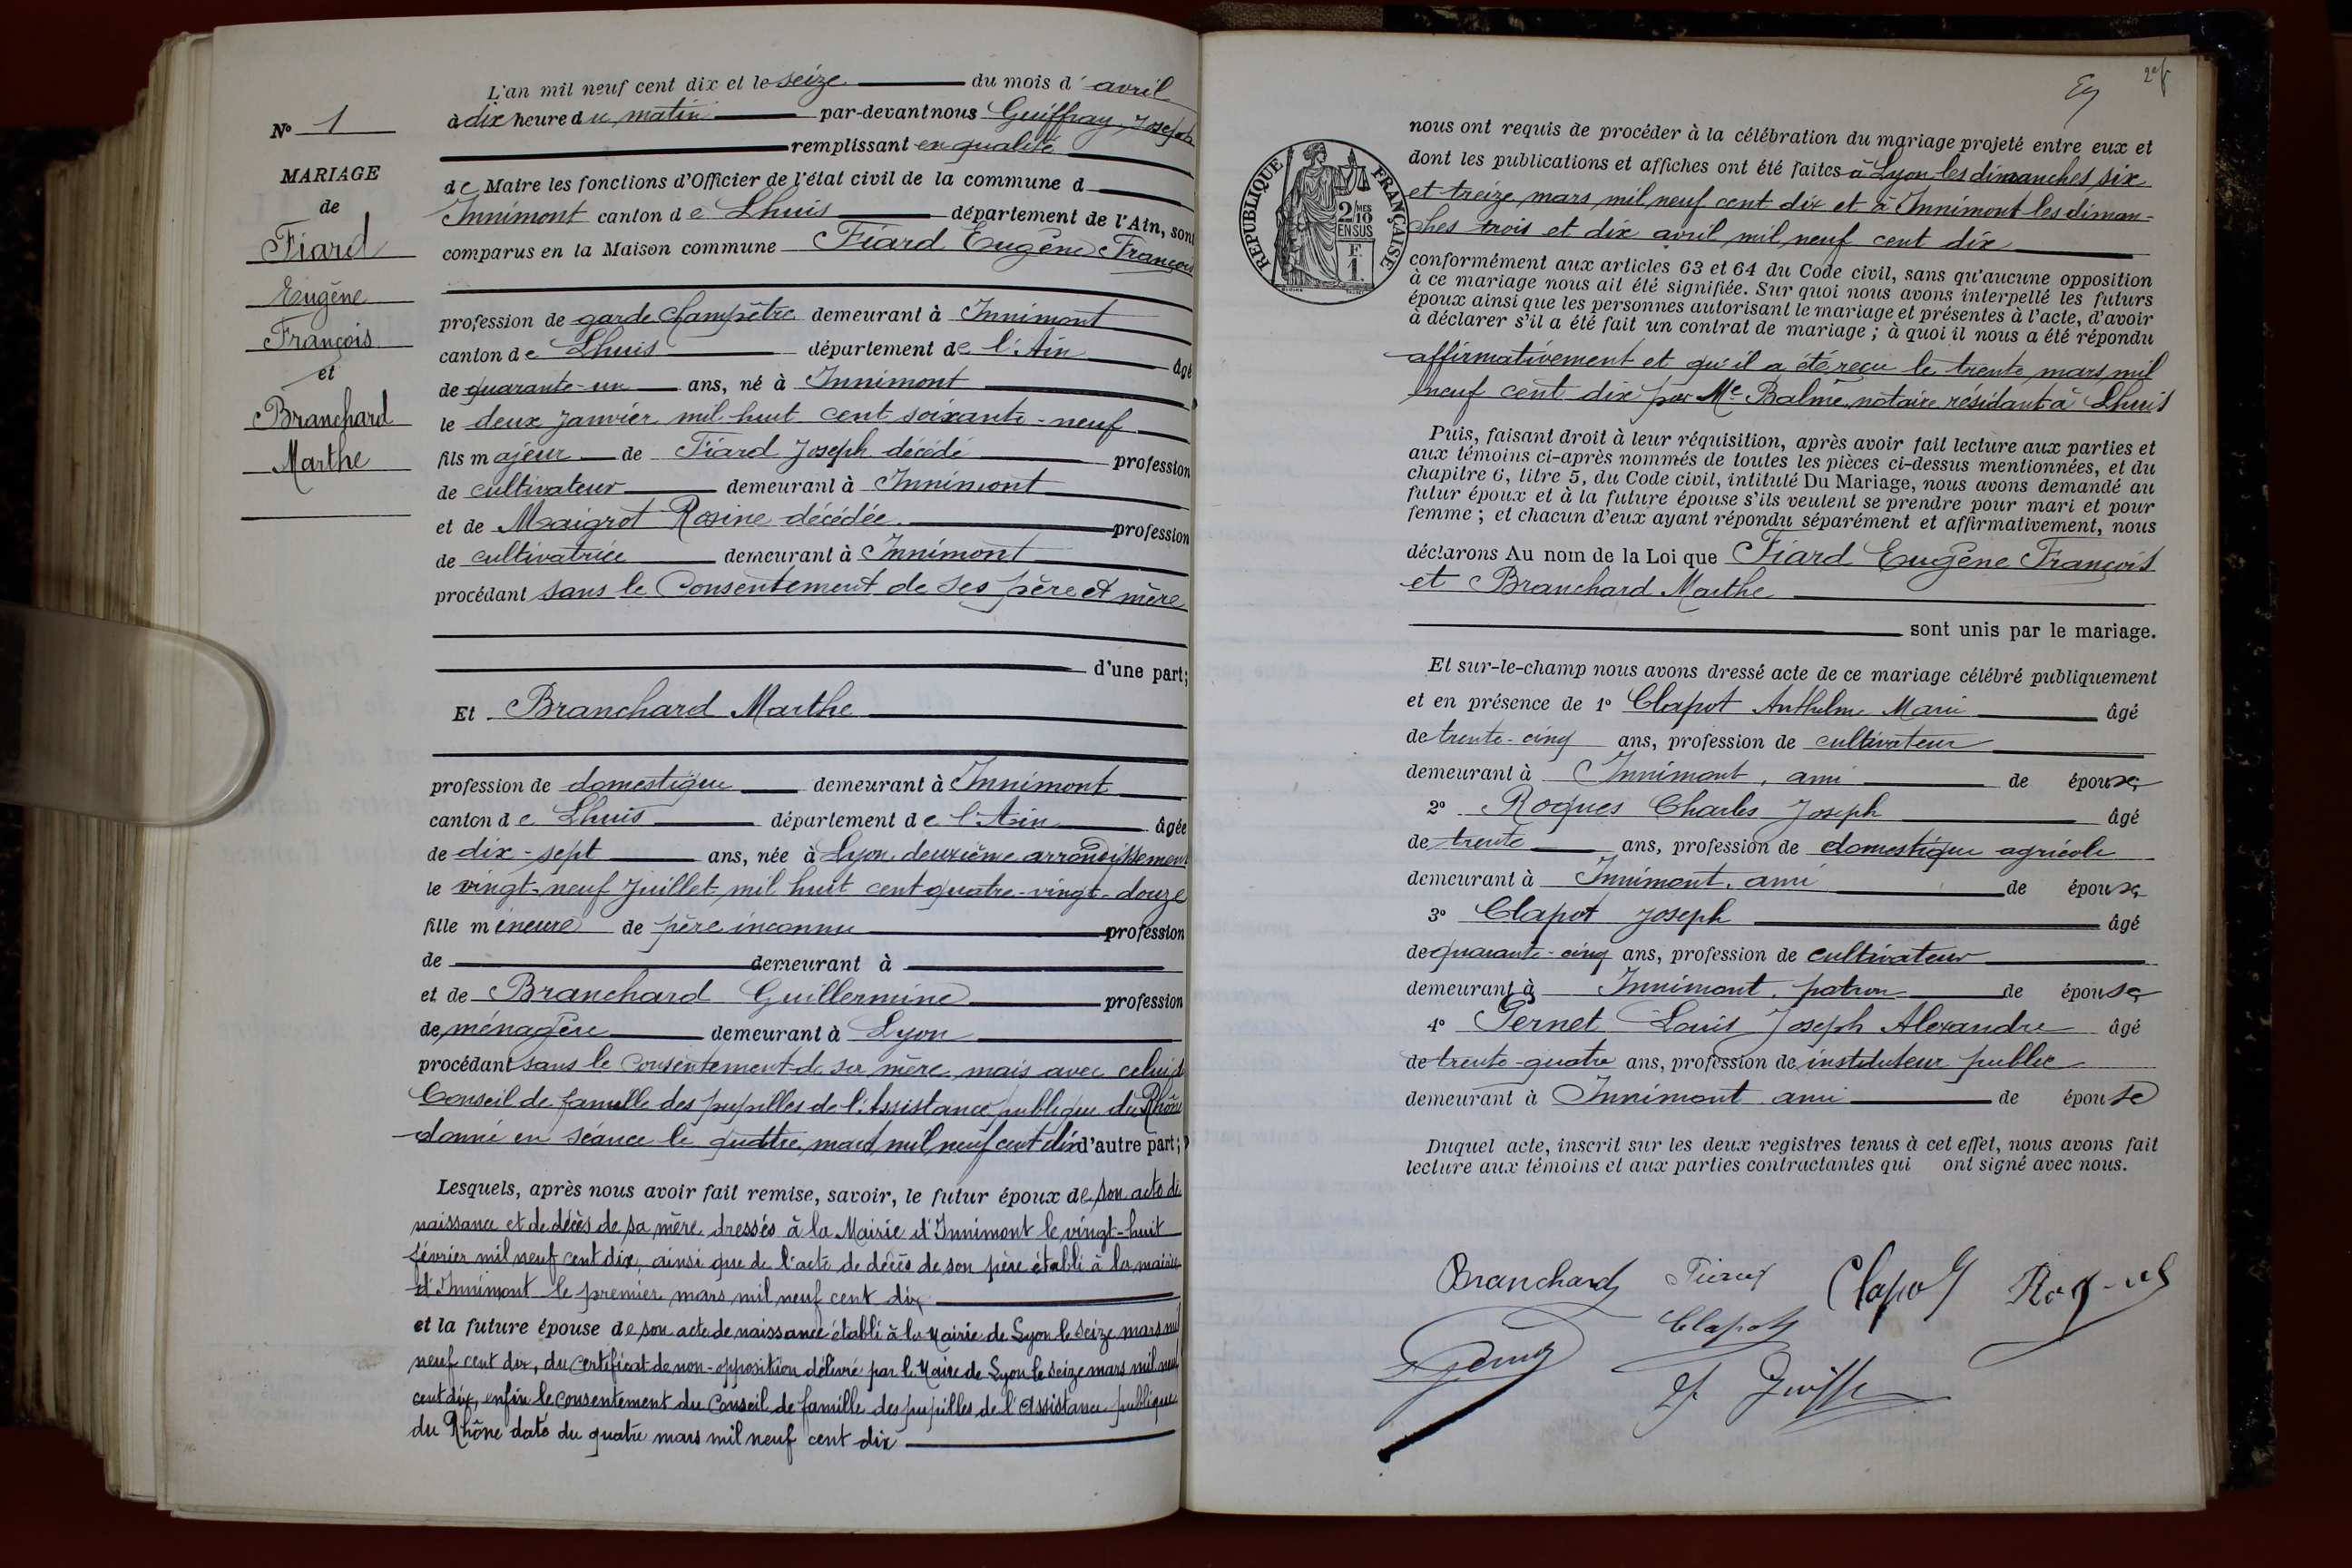 L'an mil neuf cent dix et le seize du mois d'avril
à dix heure du matin par-devant nous Guiffray Joseph
remplissant en qualité
de Maire les fonctions d'Officier de l'état civil de la commune d
Innimont canton de Lhuis département de l'Ain, sont
comparus en la Maison commune Fiard Eugène François
profession de garde champêtre demeurant à Innimont
canton de Lhuis département de l'Ain âgé
de quarante-un ans, né à Innimont
le deux Janvier mil huit cent soixante-neuf
fils majeur de Fiard Joseph décédé profession
de cultivateur demeurant à Innimont
et de Maigrot Rosine décédée profession
de cultivatrice demeurant à Innimont
procédant sans le Consentement de ses père et mère
d'une part;
Et Branchard Marthe
profession de domestique demeurant à Innimont
canton de Lhuis département de l'Ain âgée
de dix-sept ans, née à Lyon deuxième arrondissement
le vingt-neuf Juillet mil huit cent quatre-vingt-douze
fille mineure de père inconnu profession
de demeurant à
et de Branchard Guillermine profession
de ménagère demeurant à Lyon
procédant sans le Consentement de sa mère mais avec celui d
Conseil de famille des pupilles de l'Assistance publique du Rhône
donné en séance le quatre mars mil neuf cent dix d'autre part;
Lesquels, après nous avoir fait remise, savoir, le futur époux de son acte de
naissance et de décès de sa mère dressés à la Mairie d'Innimont le vingt-huit
février mil neuf cent dix, ainsi que de l'acte de décès de son père établi à la mairie
d'Innimont le premier mars mil neuf cent dix
et la future épouse de son acte de naissance établi à la Mairie de Lyon le seize mars mil
neuf cent dix, du certificat de non-opposition délivré par le Maire de Lyon le seize mars mil neuf
cent dix, enfin le consentement du Conseil de famille des pupilles de l'Assistance publique
du Rhône daté du quatre mars mil neuf cent dix
N° 1
MARIAGE
de
Fiard
Eugène
François
et
Branchard
Marthe
nous ont requis de procéder à la célébration du mariage projeté entre eux et
dont les publications et affiches ont été faites à Lyon les dimanches six
et treize mars mil neuf cent dix et à Innimont les diman-
ches trois et dix avril mil neuf cent dix
conformément aux articles 63 et 64 du Code civil, sans qu'aucune opposition
à ce mariage nous ait été signifiée. Sur quoi nous avons interpellé les futurs
époux ainsi que les personnes autorisant le mariage et présentes à l'acte, d'avoir
à déclarer s'il a été fait un contrat de mariage; à quoi il nous a été répondu
affirmativement et qu'il a été reçu le trente mars mil
neuf cent dix par Me Balme, notaire résidant à Lhuis
Puis, faisant droit à leur réquisition, après avoir fait lecture aux parties et
aux témoins ci-après nommés de toutes les pièces ci-dessus mentionnées, et du
chapitre 6, titre 5, du Code civil, intitulé Du Mariage, nous avons demandé au
futur époux et à la future épouse s'ils veulent se prendre pour mari et pour
femme; et chacun d'eux ayant répondu séparément et affirmativement, nous
déclarons Au nom de la Loi que Fiard Eugène François
et Branchard Marthe
sont unis par le mariage.
Et sur-le-champ nous avons dressé acte de ce mariage célébré publiquement
et en présence de 1° Clapot Anthelme Marie âgé
de trente-cinq ans, profession de cultivateur
demeurant à Innimont, ami de épouse
2° Roques Charles Joseph âgé
de trente ans, profession de domestique agricole
demeurant à Innimont, ami de épouse
3° Clapot Joseph âgé
de quarante-cinq ans, profession de cultivateur
demeurant à Innimont, patron de épouse
4° Pernet Louis Joseph Alexandre âgé
de trente-quatre ans, profession de instituteur public
demeurant à Innimont ami de épouse
Duquel acte, inscrit sur les deux registres tenus à cet effet, nous avons fait
lecture aux témoins et aux parties contractantes qui ont signé avec nous.
RÉPUBLIQUE FRANÇAISE
2/10
MES
EN SUS
F.
1.
Branchard Fiard Clapot Roques
Clapot